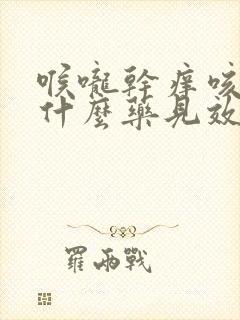 喉嚨幹癢咳
什麼藥見效
羅兩戰